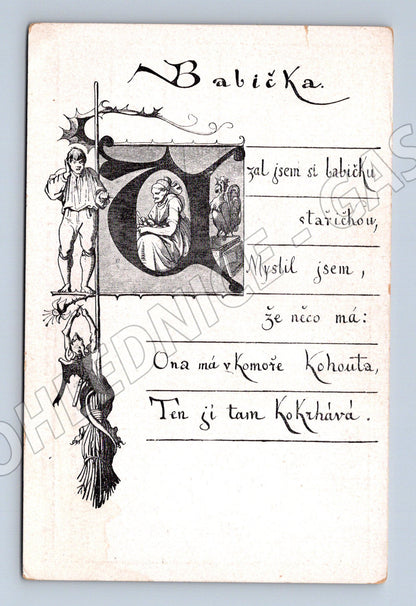 Babička.
Uzal jsem si babičku
stařičkou,
Myslil jsem,
že něco má:
Ona má v Komoře Kohouta,
Ten jí tam Kokrhává.
POHLEDNICE - GAS